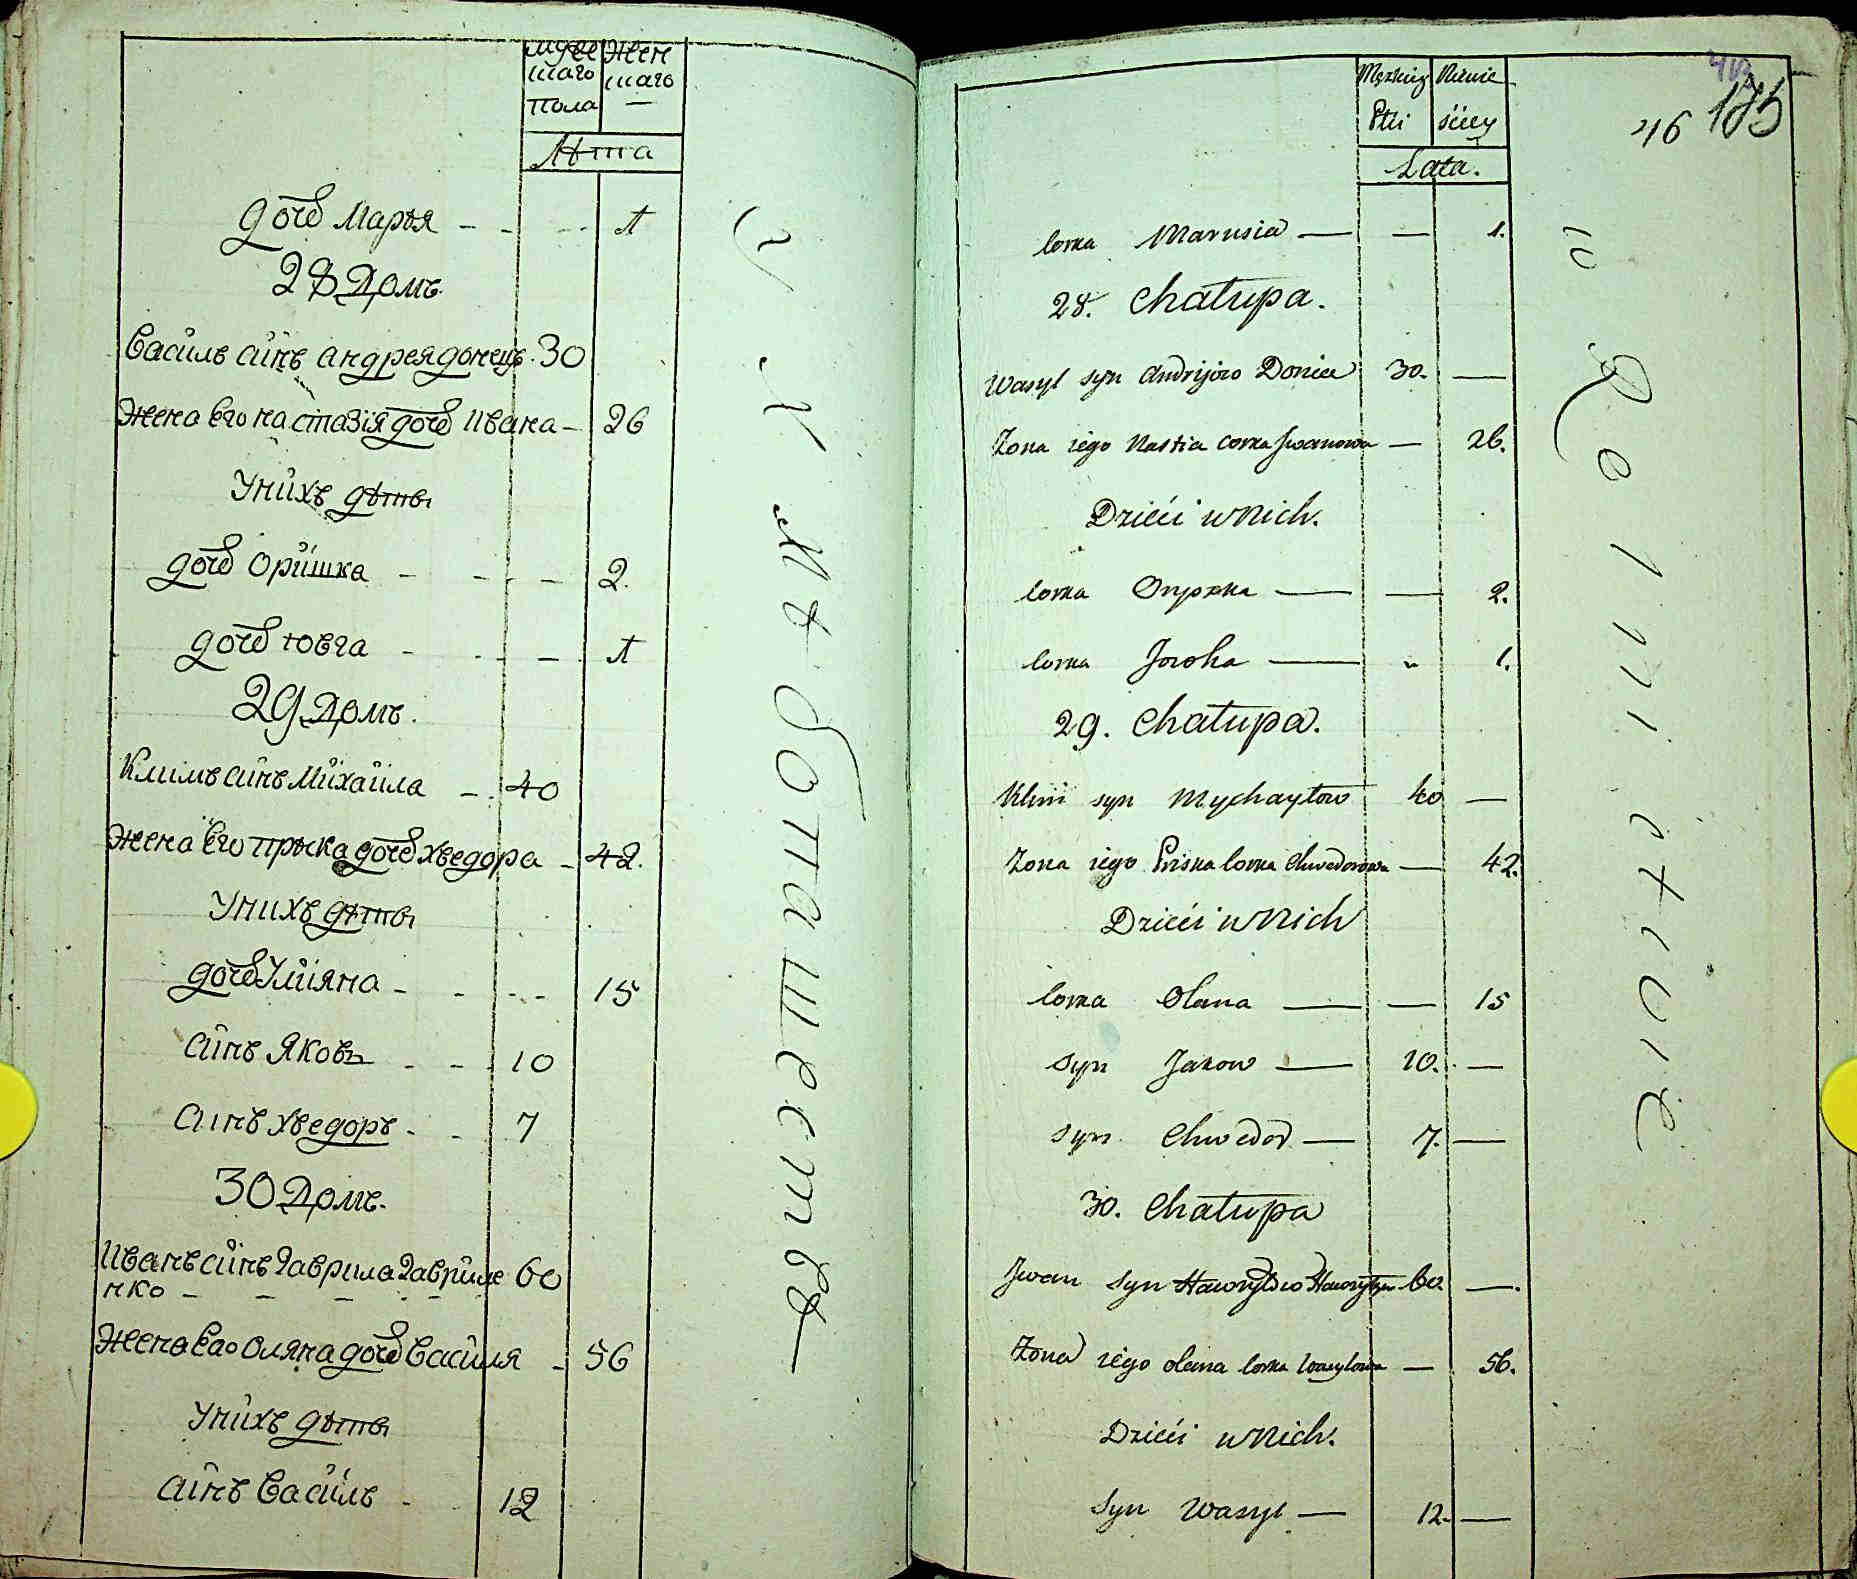 мужес Жен
шаго шаго
пола —
Лѣта
дочь Марѣя - - - 1
28 Домъ.
Василь синъ андрея донецъ. 30
Жена Его настазія дочь Ивана - 26
Унихъ дѣты
дочь Оришка - - - 2.
дочь ювга - - - 1
29 Домъ.
Климъ синъ Михаила - 40
Жена Его прыска дочь хведора - 42.
Унихъ дѣты
дочь Уліяна - - - 15
синъ Яковъ - - 10
синъ хведоръ - - 7
30 Домъ.
Иванъ синъ Гаврила Гавриле 60
нко - - - - -
Жена Его Оляна дочь Василя - 56
Унихъ дѣты
синъ Василь - 12
въ Ротмистр
Męzkiey Niewie
Płci ściey
Lata.
46 175
Corka Marusia — — 1.
28. Chałupa.
Wasyl syn Andrijow Doniec 30. —
Żona iego Nastia corka Iwanowa — 26.
Dzieći u Nich.
Corka Oryszka — — 2.
Corka Jowha — " 1.
29. Chałupa.
Klim syn Mychayłow 40 —
Żona iego Priska Corka Chwedorowa — 42.
Dzieći u Nich
Corka Olana — — 15
Syn Jakow — 10. —
Syn Chwedor — 7. —
30. Chałupa
Iwan Syn Hawryłow 60. —.
Żona iego Olana Corka Wasylowa — 56.
Dzieći u Nich.
Syn Wasyl — 12. —